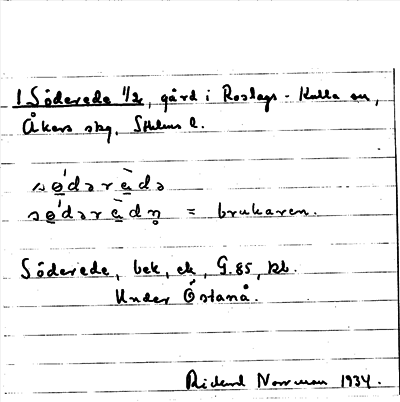 1 Söderede 1/2, gård i Roslags-Kulla sn,
Åkers skg, Sthlms l.
sǿdəràdə
sǿdəràdn̥ = brukaren.
Söderede, bek, ek, G. 85, kb.
Under Östanå.
Rickard Norrman 1934.